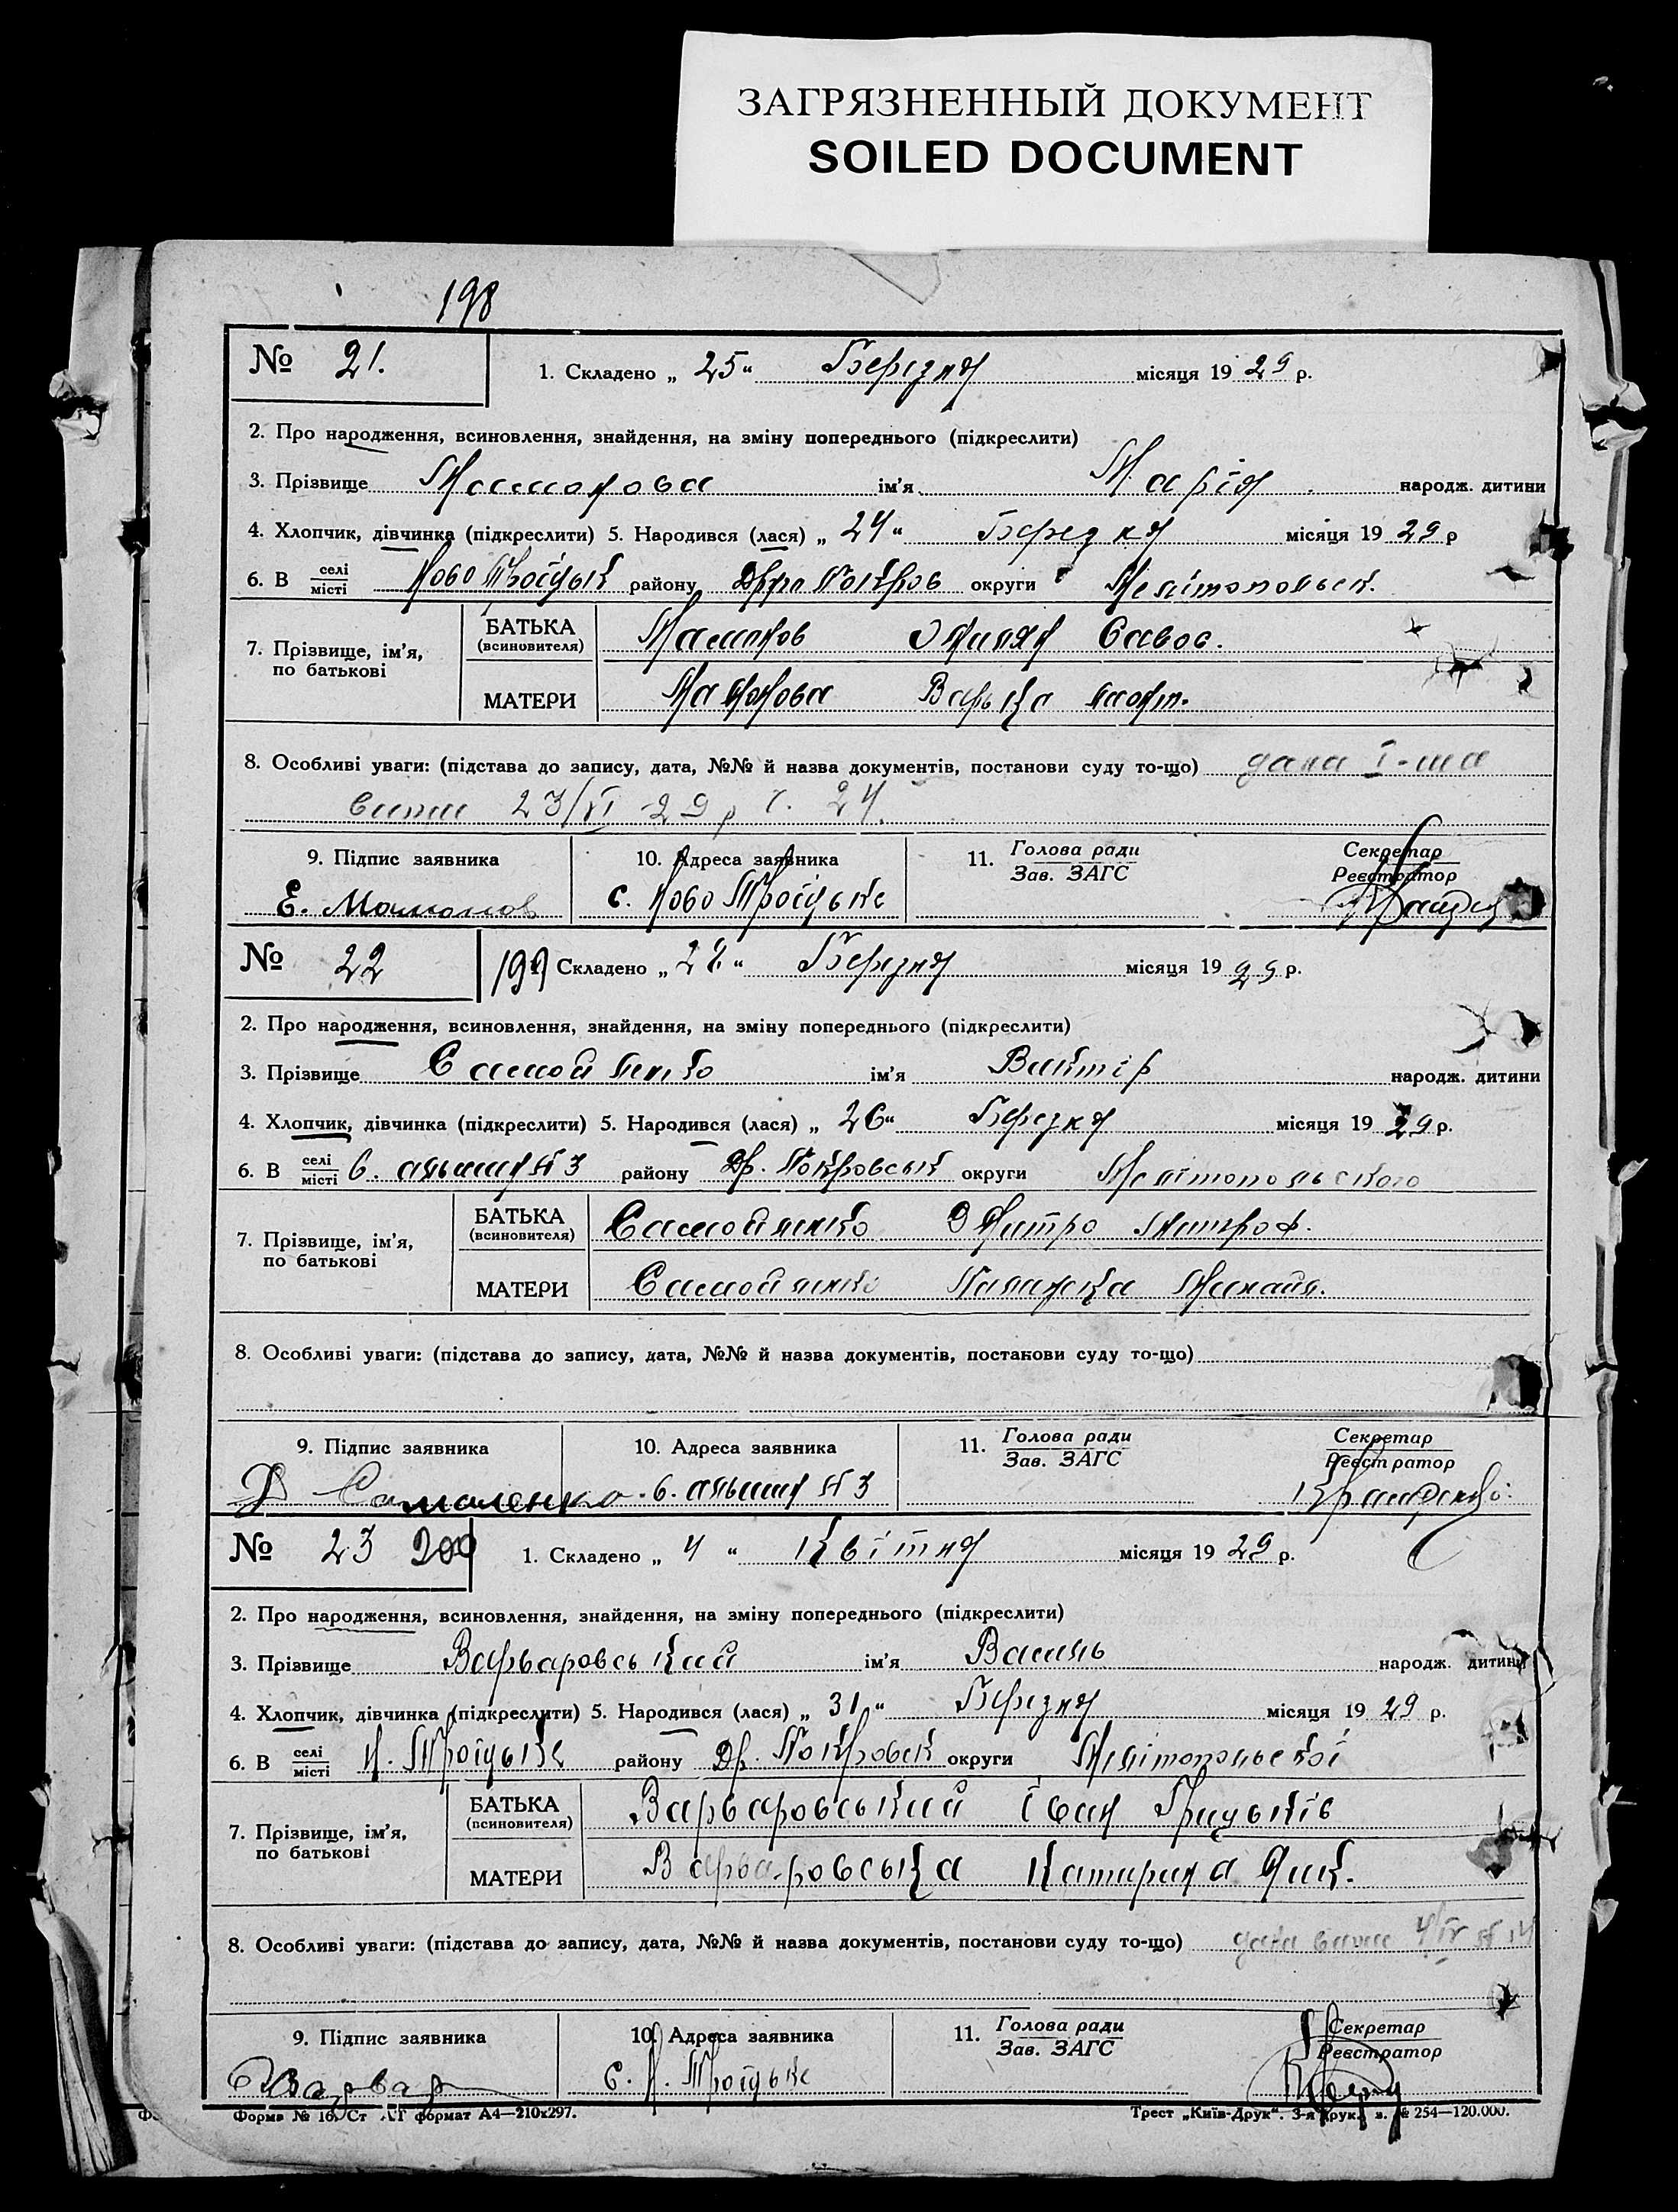 ЗАГРЯЗНЕННЫЙ ДОКУМЕНТ
SOILED DOCUMENT
198
№ 21. 1. Складено „ 25 “ Березня місяця 19 29 р.
2. Про народження, всиновлення, знайдення, на зміну попереднього (підкреслити)
3. Прізвище Мамонова ім'я Марія народж. дитини
4. Хлопчик, дівчинка (підкреслити) 5. Народився (лася) „ 24 “ Березня місяця 19 29 р
6. В селі/місті Ново Троїцьк району округи Мелітопольск.
7. Прізвище, ім'я, по батькові
БАТЬКА (всиновителя) Савос.
МАТЕРИ Варька
8. Особливі уваги: (підстава до запису, дата, №№ й назва документів, постанови суду то-що) дана І-ша
випис 23/VI 29 р 24.
9. Підпис заявника 10. Адреса заявника 11. Голова ради/Зав. ЗАГС Секретар/Реєстратор
Е. Мамонов с. Ново Троїцьке
№ 22 199 Складено „ “ Березня місяця 19 29 р.
2. Про народження, всиновлення, знайдення, на зміну попереднього (підкреслити)
3. Прізвище Самойленко ім'я Віктір народж. дитини
4. Хлопчик, дівчинка (підкреслити) 5. Народився (лася) „ 26 “ Березня місяця 19 29 р.
6. В селі/місті №3 району Др. Покровськ округи Мелітопольського
7. Прізвище, ім'я, по батькові
БАТЬКА (всиновителя) Самойленко Дмитро Митроф.
МАТЕРИ Самойленко Палажка Михайл.
8. Особливі уваги: (підстава до запису, дата, №№ й назва документів, постанови суду то-що)
9. Підпис заявника 10. Адреса заявника 11. Голова ради/Зав. ЗАГС Секретар/Реєстратор
Д №3
№ 23 200 1. Складено „ 4 “ Квітня місяця 19 29 р.
2. Про народження, всиновлення, знайдення, на зміну попереднього (підкреслити)
3. Прізвище Варваровський ім'я Василь народж. дитини
4. Хлопчик, дівчинка (підкреслити) 5. Народився (лася) „ 31 “ Березня місяця 19 29 р.
6. В селі/місті Н. Троїцьке району Др. Покровск округи Мелітопольської
7. Прізвище, ім'я, по батькові
БАТЬКА (всиновителя) Варваровський Іван Грицьків
МАТЕРИ Варваровська Катирина Яик.
8. Особливі уваги: (підстава до запису, дата, №№ й назва документів, постанови суду то-що) дана випис 4/IV № 14
9. Підпис заявника 10. Адреса заявника 11. Голова ради/Зав. ЗАГС Секретар/Реєстратор
с. Н. Троїцьке
Форма № 16. Ст формат А4—210х297. Трест „Київ-Друк“. 3-я друк. з. № 254—120.000.